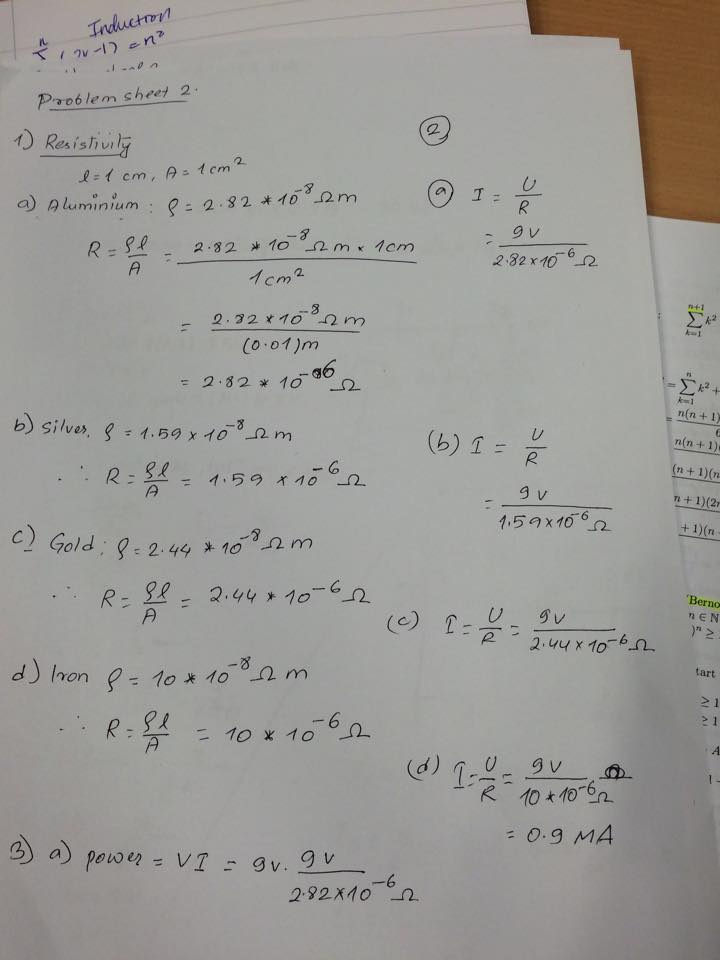 Induction
n
= n²
Problem sheet 2.
1) Resistivity
l = 1 cm, A = 1 cm²
a) Aluminium : ρ = 2.82 * 10⁻⁸ Ω m
R = ρl/A = 2.82 * 10⁻⁸ Ω m × 1cm / 1cm²
= 2.82 × 10⁻⁸ Ω m / (0.01)m
= 2.82 * 10⁻⁶ Ω
b) Silver, ρ = 1.59 × 10⁻⁸ Ω m
∴ R = ρl/A = 1.59 × 10⁻⁶ Ω
c) Gold ; ρ = 2.44 * 10⁻⁸ Ω m
∴ R = ρl/A = 2.44 * 10⁻⁶ Ω
d) Iron ρ = 10 * 10⁻⁸ Ω m
∴ R = ρl/A = 10 * 10⁻⁶ Ω
3) a) power = VI = 9v. 9v / 2.82×10⁻⁶ Ω
2
(a) I = U/R
= 9v / 2.82×10⁻⁶ Ω
(b) I = U/R
= 9v / 1.59×10⁻⁶ Ω
(c) I = U/R = 9v / 2.44×10⁻⁶ Ω
(d) I = U/R = 9v / 10*10⁻⁶ Ω
= 0.9 MA
n+1
∑ k²
k=1
n
= ∑ k² +
k=1
= n(n + 1)(
6
n(n + 1)(
(n + 1)(n
n + 1)(2n
+ 1)(n
'Berno
n ∈ N
)ⁿ ≥
tart
≥ 1
≥ 1